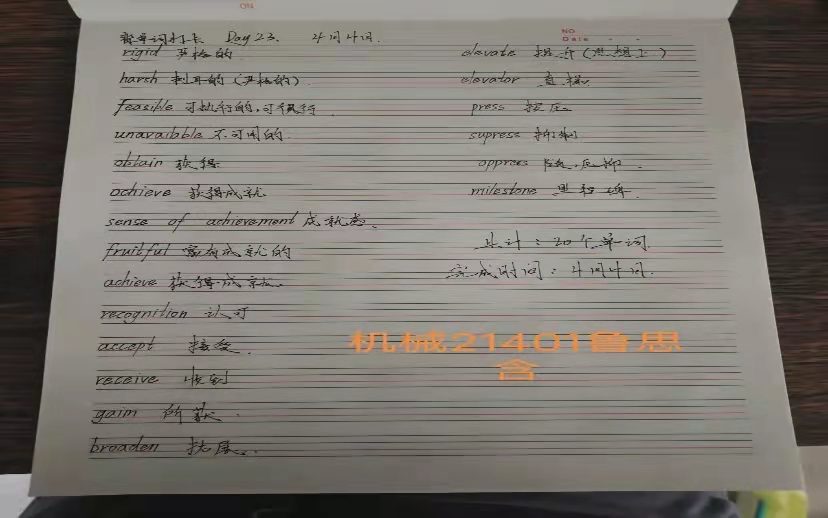 背单词打卡 Day 23. 4月4日.
NO
Date
rigid 严格的
harsh 刺耳的(严格的)
feasible 可执行的,可行
unavaibble 不可用的
obtain 获得
achieve 获得成就
sense of achievement 成就感.
fruitful 富有成就的
achieve 获得成就
recognition 认可
accept 接受.
receive 收到
gaim 所获.
broaden 拓展.
elevate 提升(思想上)
elevator 直梯
press 按压
supress 抑制
oppress 压抑.
milestone 里程碑.
共计:20个单词
完成时间:4月4日.
机械21401鲁思
含